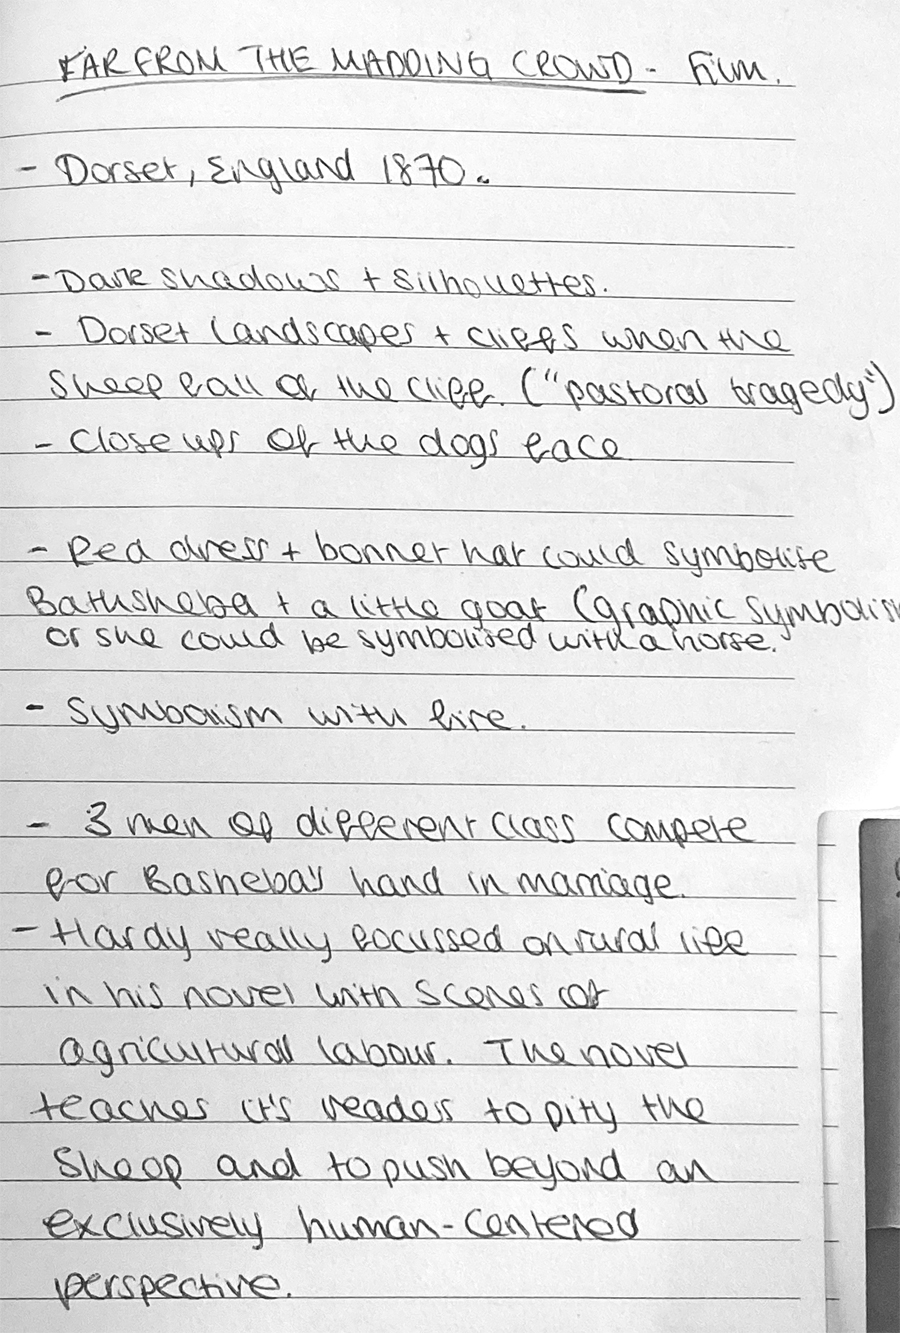 FAR FROM THE MADDING CROWD - Film.
- Dorset, England 1870.
- Dark shadows + silhouettes.
- Dorset landscapes + cliffs when the
sheep fall of the cliff. ("pastoral tragedy")
- Close ups of the dogs face
- Red dress + bonnet hat could symbolise
Bathsheba + a little goat (graphic symbolism
or she could be symbolised with a horse.
- Symbolism with fire.
- 3 men of different class compete
for Basheba's hand in marriage.
- Hardy really focussed on rural life
in his novel with scenes of
agricultural labour. The novel
teaches it's readers to pity the
sheep and to push beyond an
exclusively human-centered
perspective.